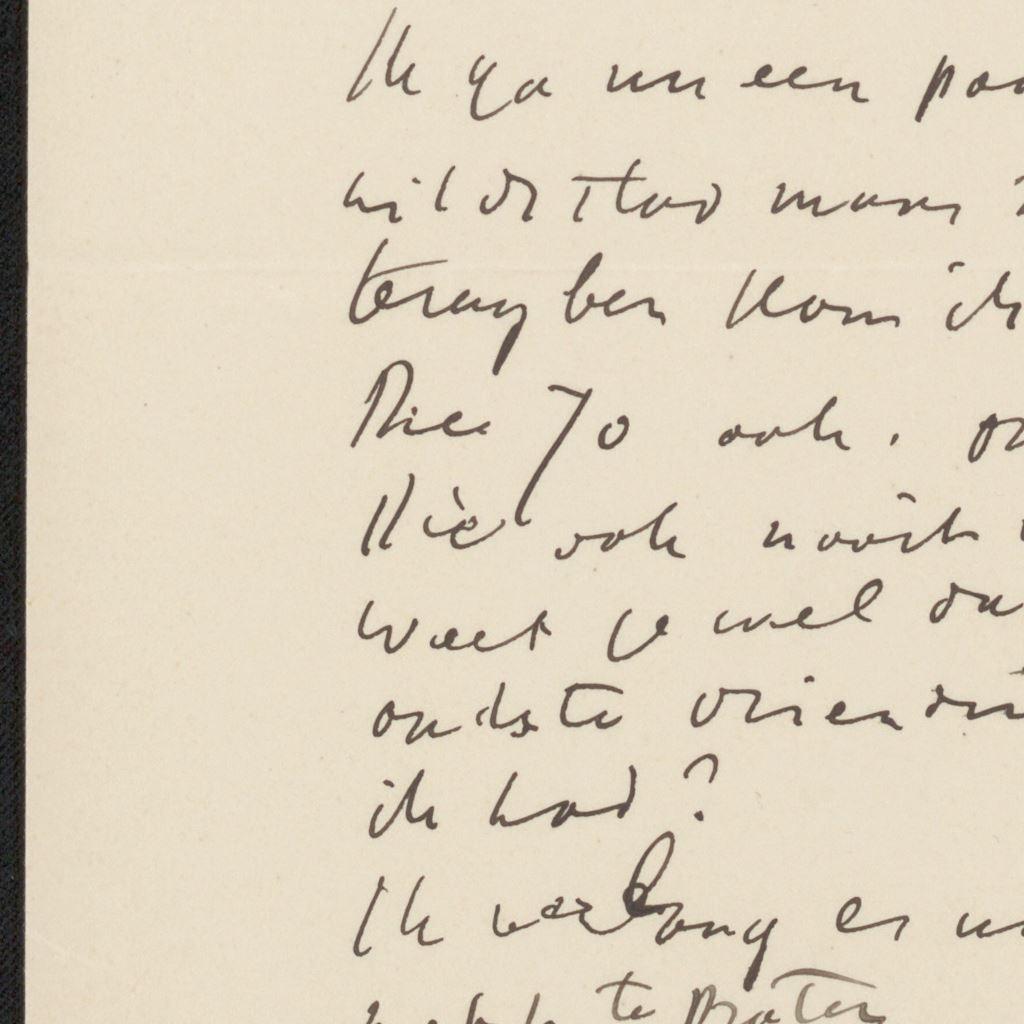 Ik ga nu een paa
wildstad maar
terug ben kom ik
Bice Jo ook. on
die ook nooit
weet je wel da
oudste vriendin
ik had?
Ik verlang er
te praten